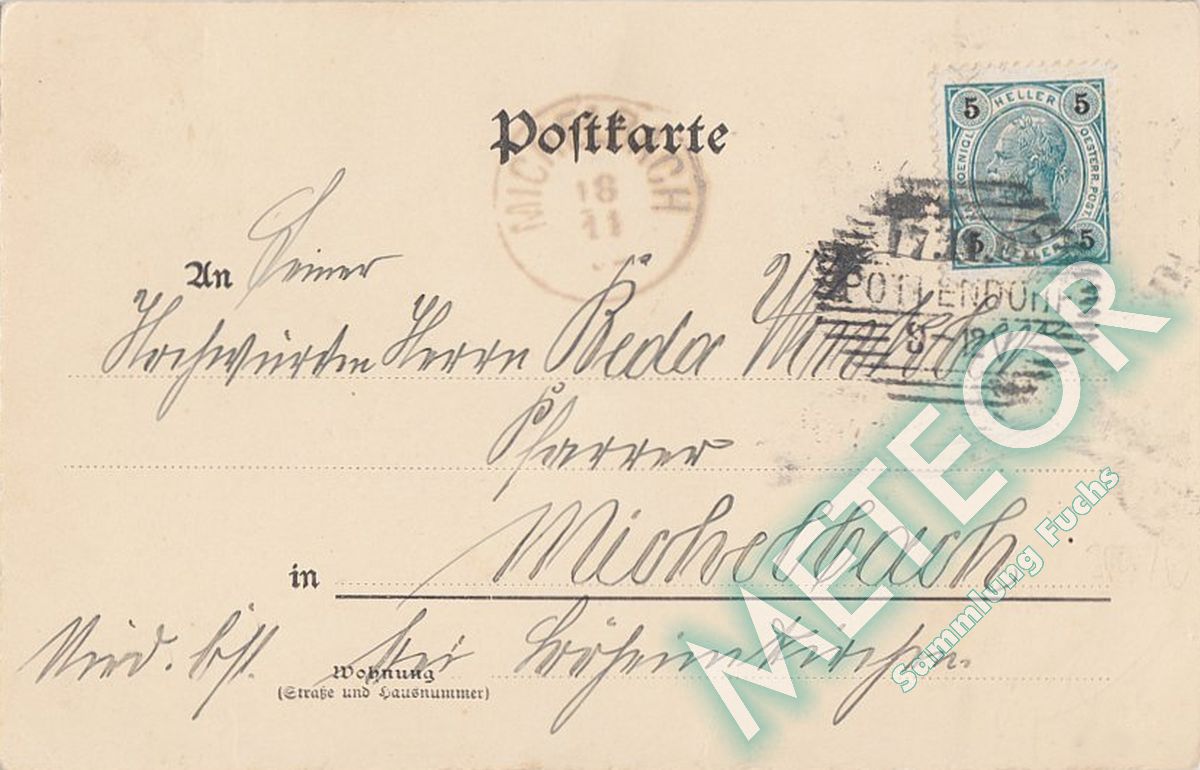 Postkarte
5 HELLER 5
KOENIGL. OESTERR. POST.
5 5
MIC CH
18
11
17.11.
POTTENDORF
An Seiner
Hochwürden Herrn Beda
Pfarrer
in Michelbach
Nied. Öst. bei Böheimkirchen
Wohnung
(Straße und Hausnummer)
METEOR
Sammlung Fuchs